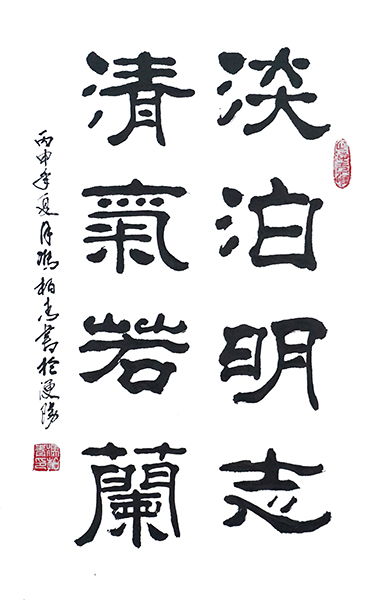 淡泊明志
清氣若蘭
丙申年夏月柏書於